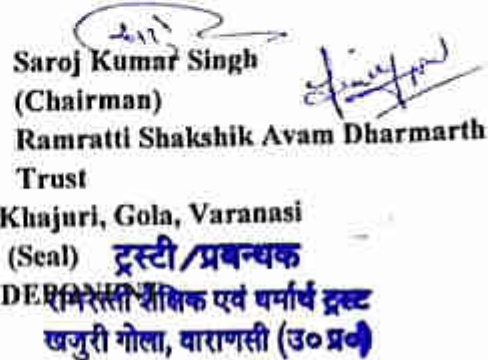 Saroj Kumar Singh
(Chairman)
Ramratti Shakshik Avam Dharmarth
Trust
Khajuri, Gola, Varanasi
(Seal) ट्रस्टी/प्रबन्धक
DEPONENT
रामरत्ती शैक्षिक एवं धर्मार्थ ट्रस्ट
खजुरी गोला, वाराणसी (उ०प्र०)